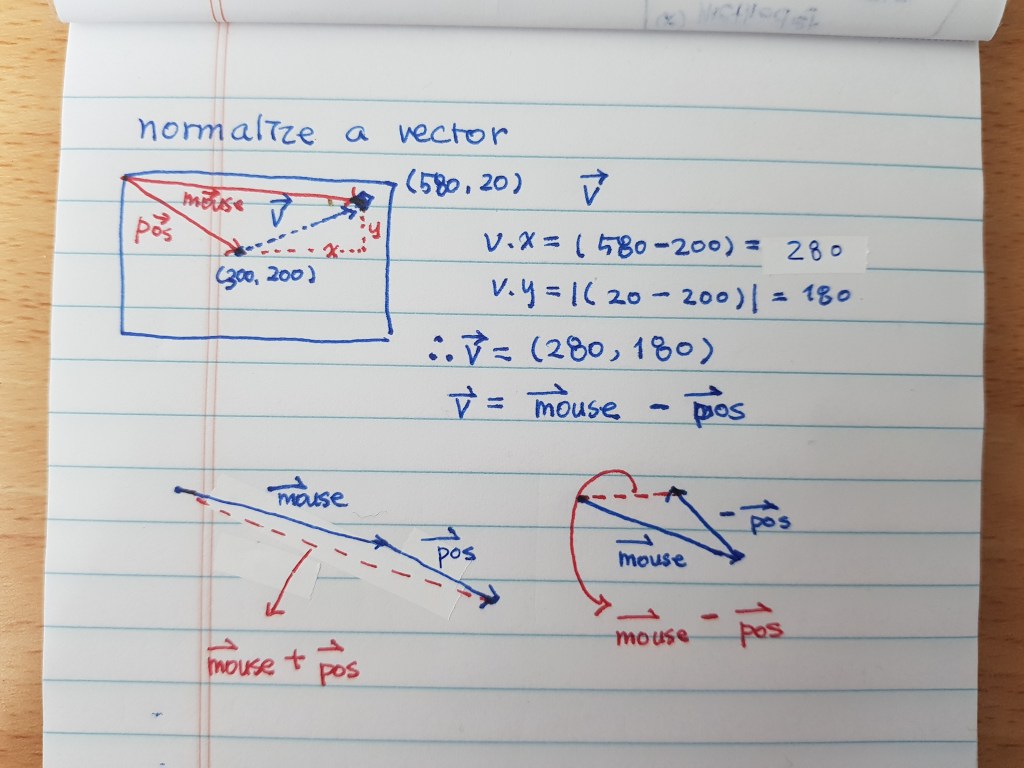 normalize a vector
(580, 20)
v
mouse
v
pos
y
x
(300, 200)
v.x = (580-200) = 280
v.y = |(20 - 200)| = 180
∴ v = (280, 180)
v = mouse - pos
mouse
pos
mouse + pos
- pos
mouse
mouse - pos